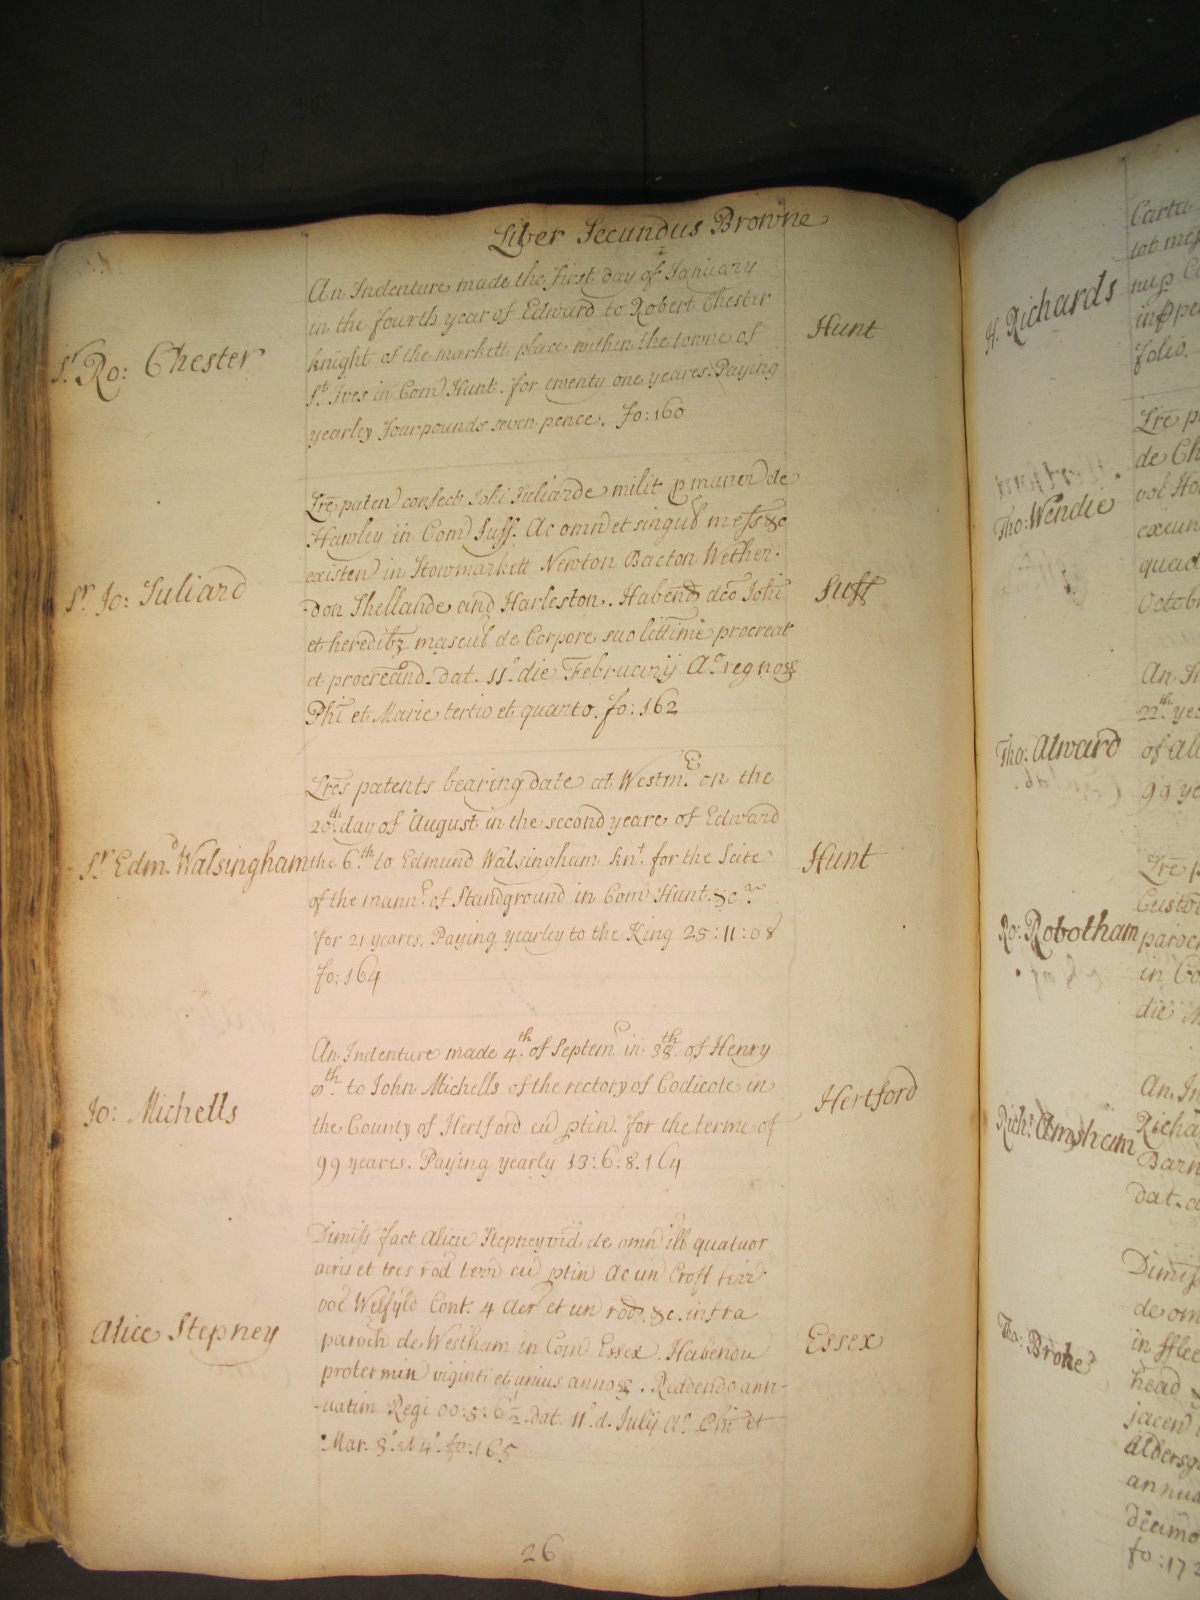 Liber Secundus Browne
An Indenture made the first day of January
in the fourth year of Edward to Robert Chester
knight of the markett place within the towne of
St. Ives in Com Hunt. for twenty one yeares. Paying
yearley Four pounds seven pence. fo: 160
Sr. Ro: Chester
Hunt
Lre paten confect Johi Suliarde milit p maner de
Hawley in Com Suff. Ac omn et singul mess &c
existen in Stowmarkett Newton Bacton Wether-
don Shellande and Harleston. Habend dco Johi
et heredibz mascul de Corpore suo littime procreat
et procreand. dat. 11o. die Februarij Ao. regnor
Phi et Marie tertio et quarto. fo: 162
Sr. Jo: Suliard
Suff
Lres patents bearing date at Westmr. on the
20th. day of August in the second yeare of Edward
the 6th. to Edmund Walsingham knt. for the Scite
of the mannr. of Standground in Com Hunt. &c
for 21 yeares. Paying yearley to the King 25:11:08
fo: 164
Sr. Edmd. Walsingham
Hunt
An Indenture made 4th. of Septemr in 38th. of Henry
8th. to John Michells of the rectory of Codicote in
the County of Hertford cu ptin for the terme of
99 yeares. Paying yearly 13:6:8. 164
Jo: Michells
Hertford
Dimiss fact Alicie Stepney vid de omn ill quatuor
acris et tres rod terr cu ptin Ac un Croft terr
voc Welfyld Cont. 4 Acr et un rod &c. infra
paroch de Westham in Com Essex. Habendu
pro termin viginti et unius annor. Reddendo ann-
-uatim Regi 00:5:6½. dat. 11o. d. July Ao. Phi et
Mar. 3o. et 4o. fo: 165
Alice Stepney
Essex
26
H. Richards
Carta
tot mes
folio.
Tho: Wendie
Lre p
de Ch
quad
Octob
Tho: Alward
An In
22th. ye
of all
99 ye
Ro: Robotham
Lre p
Custo
paroc
in Co
die
Richd. Amsham
An In
Richa
Barn
dat. a
Tho: Broke
Dimiss
de om
in fflee
head
jacen
Aldersg
annua
decimo
fo: 172